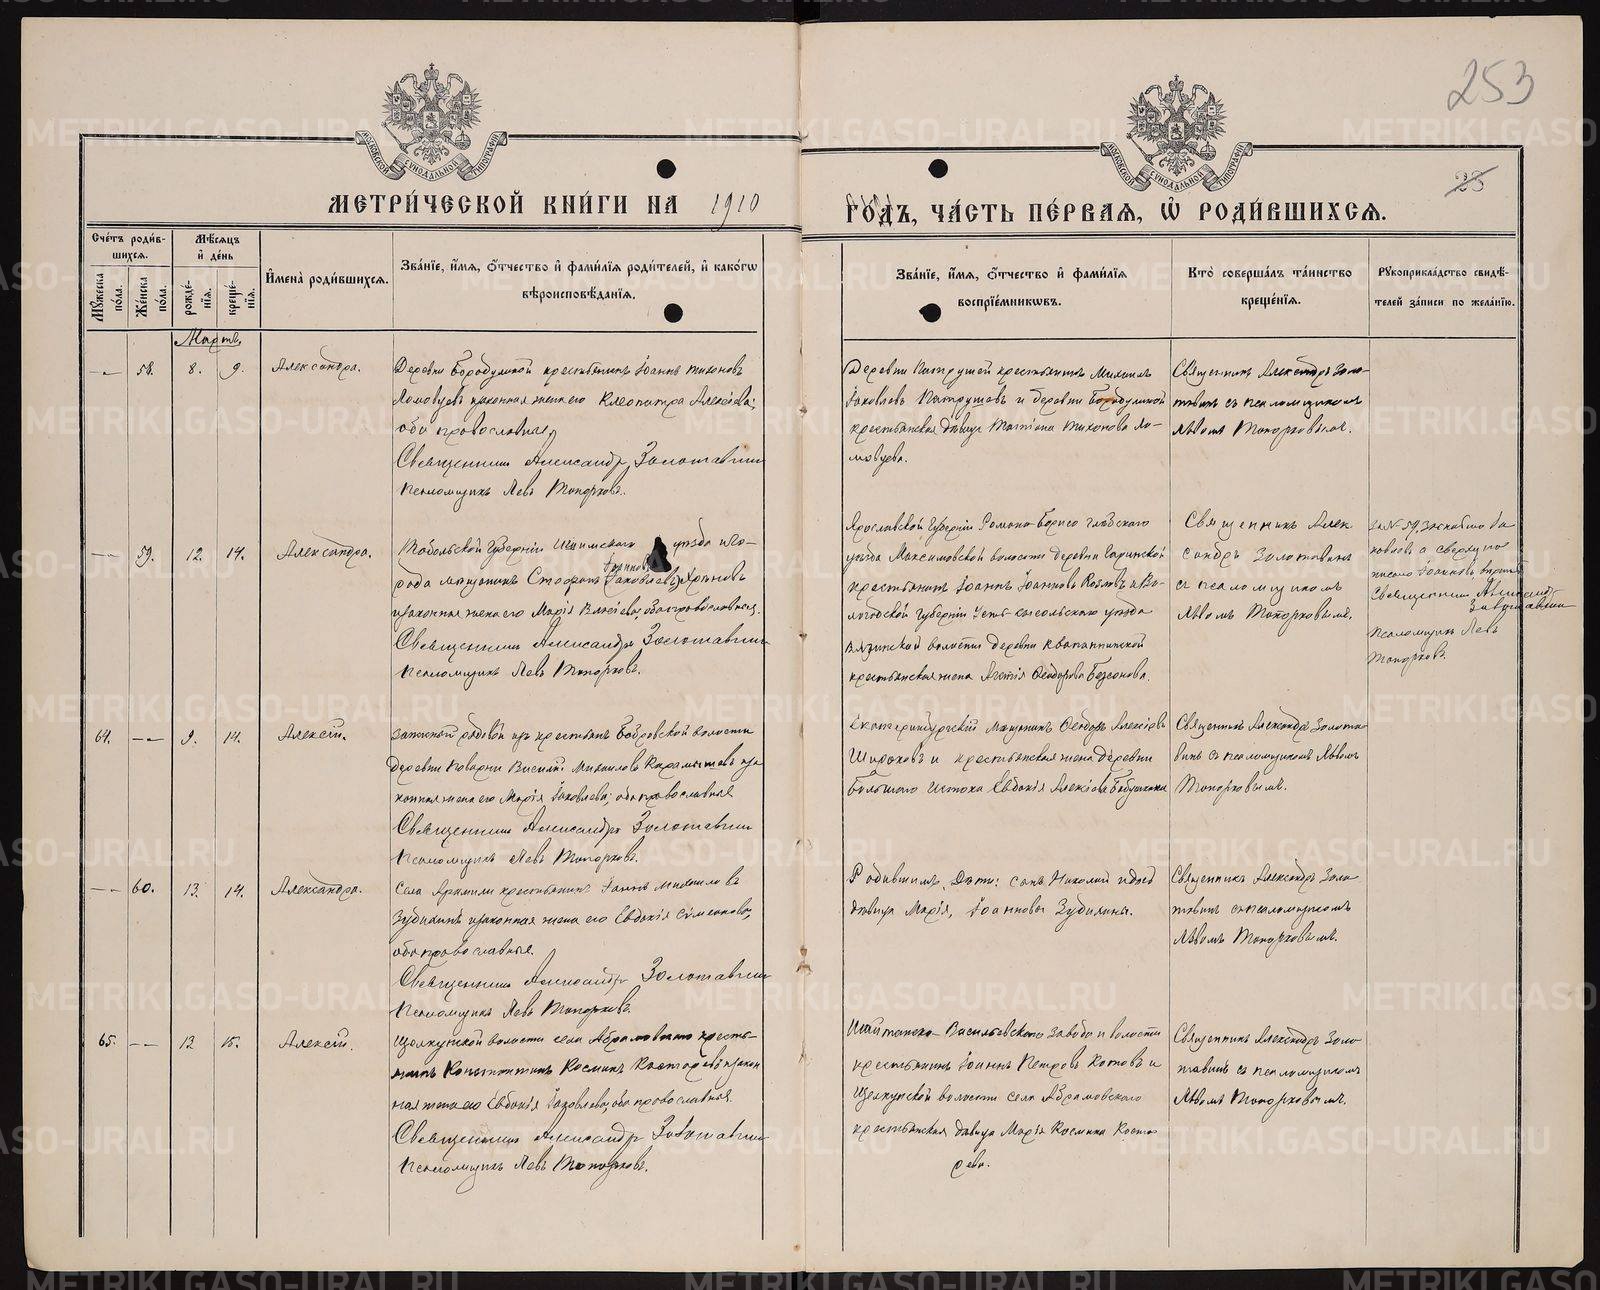 253
23
МОСКОВСКОЙ СѴНОДАЛЬНОЙ ТИПОГРАФІИ
МОСКОВСКОЙ СѴНОДАЛЬНОЙ ТИПОГРАФІИ
МЕТРИ́ЧЕСКОЙ КНИ́ГИ НА 1910 ГОДЪ, ЧА́СТЬ ПЕ́РВАЯ, Ѡ РОДИ́ВШИХСЯ.
Сче́тъ роди́в-
шихся.
Мꙋ́жеска по́ла.
Же́нска по́ла.
Мѣ́сяцъ и де́нь
рожде́-нїя.
креще́-нїя.
И҆мена̀ роди́вшихся.
Зва́нїе, и҆́мя, ѻ҆́тчество и҆ фами́лїя роди́телей, и҆ како́гѡ
вѣроисповѣ́данїя.
Зва́нїе, и҆́мя, ѻ҆́тчество и҆ фами́лїя
воспрїе́мникѡвъ.
Кто̀ соверша́лъ та́инство
креще́нїя.
Рꙋкоприкла́дство свидѣ́-
телей за́писи по жела́нїю.
Мартъ
— 58. 8. 9. Александра.
Деревни Бородулиной крестьянинъ Іоаннъ Тихоновъ
Ломовцевъ и законная жена его Клеопатра Алексѣева;
оба православные.
Священникъ Александръ Золотавинъ
Псаломщикъ Левъ Топорковъ.
Деревни Патрушей крестьянинъ Михаилъ
Іаковлевъ Патрушевъ и деревни Бородулиной
крестьянская дѣвица Татіана Тихонова Ло-
мовцева.
Священникъ Александръ Золо-
тавинъ съ псаломщикомъ
Львомъ Топорковымъ.
— 59. 12. 14. Александра.
Тобольской Губерніи Ишимскаго уѣзда и го-
рода мѣщанинъ Стефанъ Іаковлевъ
и законная жена его Марія Власіева, оба православные.
Священникъ Александръ Золотавинъ
Псаломщикъ Левъ Топорковъ.
Ярославской Губерніи Романо-Борисо глѣбскаго
уѣзда Максимовской волости деревни
крестьянинъ Іоаннъ Іоанновъ и Во-
логодской Губерніи Усть-сысольскаго уѣзда
волости деревни
крестьянская жена Агапія Ѳеодорова Безсонова.
Священникъ Алек
сандръ Золотавинъ
съ псаломщикомъ
Львомъ Топорковымъ.
За № 59, зачеркнуто Іа
ковлевъ а сверху на
писано Іоанновъ, вѣрно
Священникъ Александръ
Золотавинъ
Псаломщикъ Левъ
Топорковъ.
64. — 9. 14. Алексій.
Запасный рядовой изъ крестьянъ Бобровской волости
деревни Поварни Василій Михаиловъ Карамышевъ и за
конная жена его Марія Іаковлева; оба православные
Священникъ Александръ Золотавинъ
Псаломщикъ Левъ Топорковъ.
Екатеринбургскій мѣщанинъ Ѳеодоръ Алексіевъ
Широковъ и крестьянская жена деревни
Большого Истока Евдокія Алексіева Бабушкина
Священникъ Александръ Золота
винъ съ псаломщикомъ Львомъ
Топорковымъ.
— 60. 13. 14. Александра.
Села Арамили крестьянинъ Іоаннъ Михаиловъ
Зудихинъ и законная жена его Евдокія Симеонова,
оба православные.
Священникъ Александръ Золотавинъ
Псаломщикъ Левъ Топорковъ.
Родившимъ дѣти: сынъ Николай и дочь
дѣвица Марія, Іоанновы Зудихины.
Священникъ Александръ Золо
тавинъ съ псаломщикомъ
Львомъ Топорковымъ.
65. — 12 15. Алексій.
Щелкунской волости села Абрамовскаго кресть-
янинъ Константинъ Косминъ Костаревъ и закон
ная жена его Евдокія Іаковлева, оба православные.
Священникъ Александръ Золотавинъ
Псаломщикъ Левъ Топорковъ.
Шайтанско-Васильевскаго завода и волости
крестьянинъ Іоаннъ Петровъ Котовъ и
Щелкунской волости села Абрамовскаго
крестьянская дѣвица Марія Космина Коста
рева.
Священникъ Александръ Золо
тавинъ съ псаломщикомъ
Львомъ Топорковымъ.
METRIKI.GASO-URAL.RU